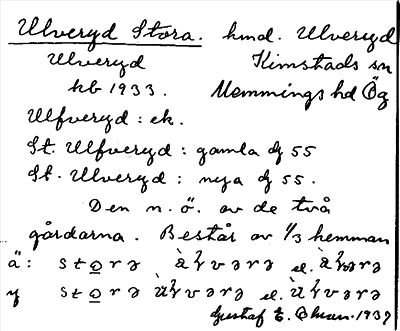 Ulveryd Stora. hmd. Ulveryd
Ulveryd Kimstads sn
hb 1933. Memmings hd Ög
Ulfveryd : ek.
St. Ulfveryd : gamla dj 55
St. Ulveryd : nya dj 55.
Den n. ö. av de två
gårdarna. Består av 1/3 hemman
ä: sto̲rə
y sto̲rə
Gustaf E. 1937